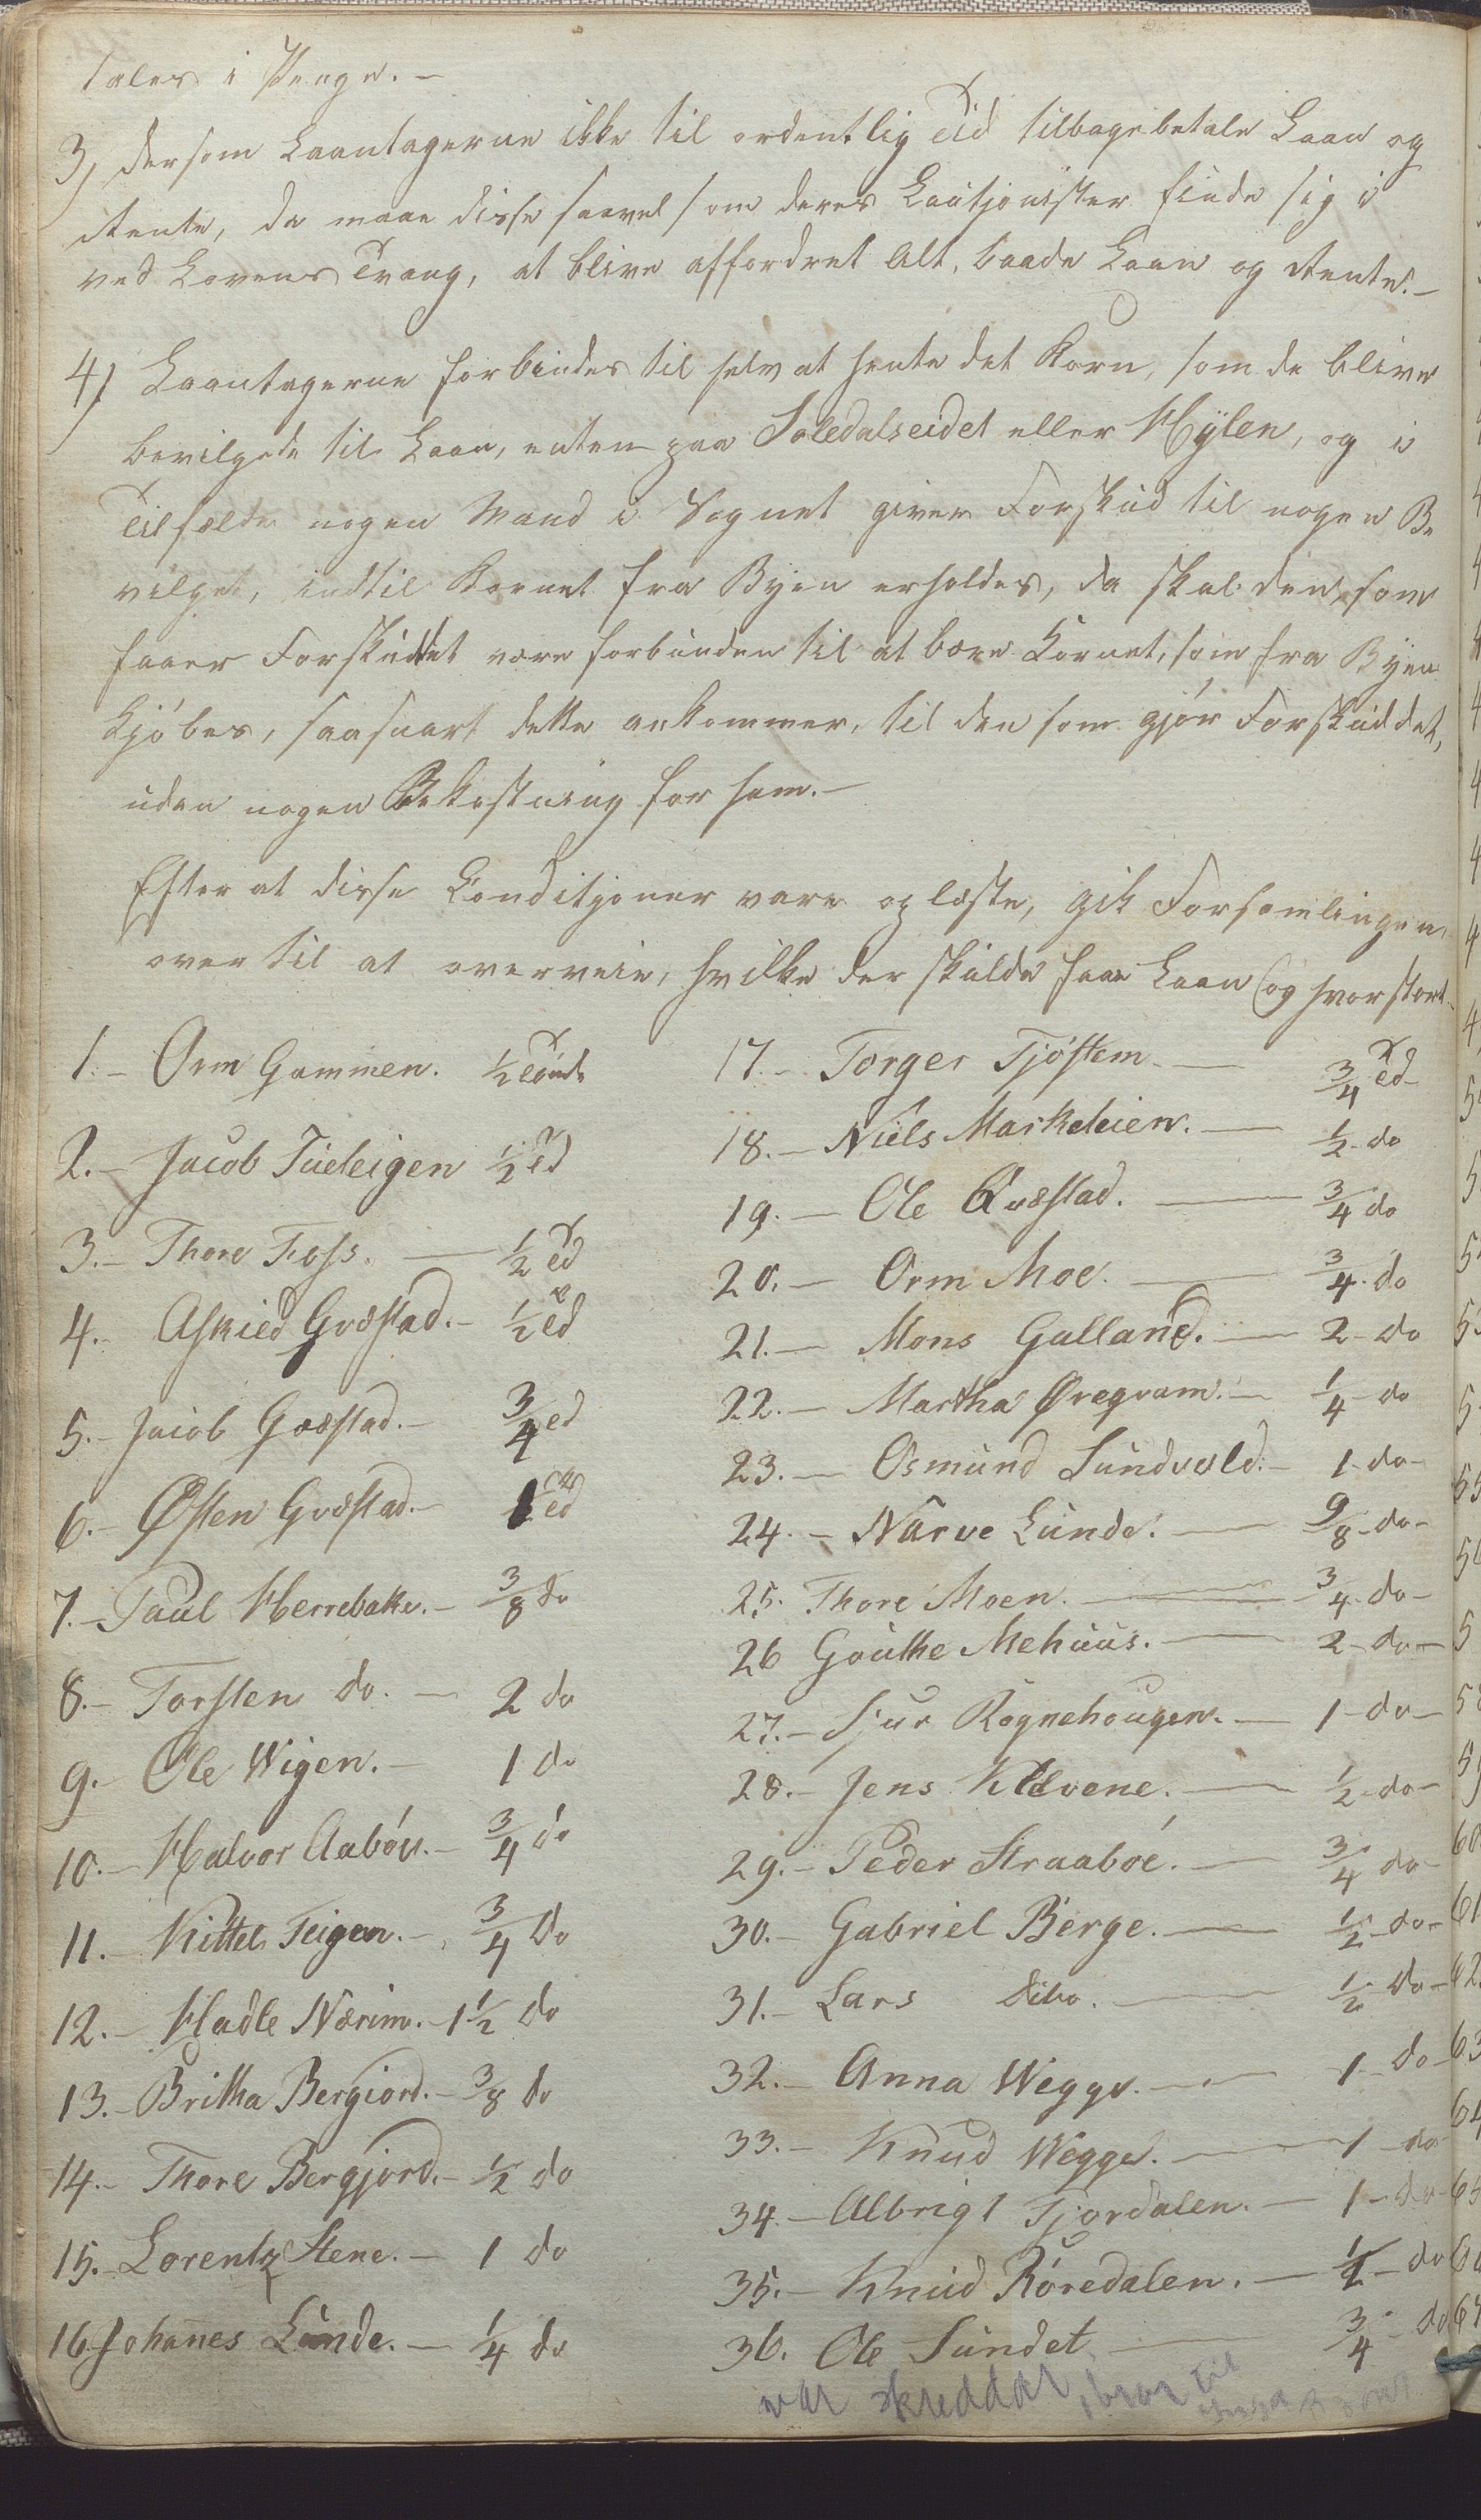 tales i Penge. —
3, Dersom Laantagerne ikke til ordentlig Tid tilbagebetale Laan og
Rente, da maae disse saavel som deres Cautjonister finde sig i
ved Lovens Tvang, at blive affordret Alt, baade Laan og Rente. —
4, Laantagerne forbindes til selv at hente det Korn, som de blive
bevilgede til Laan, enten paa Soledalseidet eller Hylen, og i
Tilfælde nogen Mand i Sognet giver Forskud til nogen Be
vilget, indtil Kornet fra Byen erholdes, da skal den, som
faaer Forskuddet være forbunden til at bære Kornet, som fra Byen
kjøbes, saasnart dette ankommer, til den som gjør Forskuddet,
uden nogen Bekostning for ham. —
Efter at disse Conditjoner vare oplæste, gik Forsamlingen
over til at overveie, hvilke der skulde faae Laan og hvor stort
1. – Orm Gammen. 1/2 Tønde
2. – Jacob Tüeteigen 1/2 Td
3. – Thore Foss. — 1/2 Td
4. – Askied Gvæstad. – 1/2 Td
5. – Jacob Gvæstad. – 3/4 Td
6. – Østen Gvæstad. – 1 Td
7. – Paul Herrebakke. – 3/8 do
8. – Torsten do. — 2 do
9. – Ole Wigen. – 1 do
10. – Halvor Aabøe. – 3/4 do
11. – Kittel Teigen. – 3/4 do
12. – Hadle Nærim. – 1 1/2 do
13. – Britha Bergiord. – 3/8 do
14. – Thore Bergjord. – 1/2 do
15. – Lorentz Stene. – 1 do
16. Johannes Lunde. — 1/4 do
17. – Torger Tjøstem. — 3/4 Td
18. – Niels Markeleien. — 1/2 do
19. – Ole Qvæstad. — 3/4 do
20. – Orm Moe. — 3/4 do
21. – Mons Galland. — 2 do
22. – Martha Øregvam. – 1/4 do
23. – Osmund Sundvold. – 1 do
24. – Narve Lunde. — 9/8 do
25. Thore Moen. — 3/4 do
26 Gouthe Mehuus. — 2 do
27. – Sjur Rognehougen. — 1 do
28. – Jens Kløvene. — 1/2 do
29. – Peder Straaboe. — 3/4 do
30. – Gabriel Berge. — 1/2 do
31. – Lars Dito. — 1/2 do
32. – Anna Wegge. — 1 do
33. – Knud Wegge. — 1 do
34. – Albrigt Fjordalen. — 1 do
35. – Knud Røredalen. — 1/2 do
36. Ole Sundet — 3/4 do
var skreddar, bror til